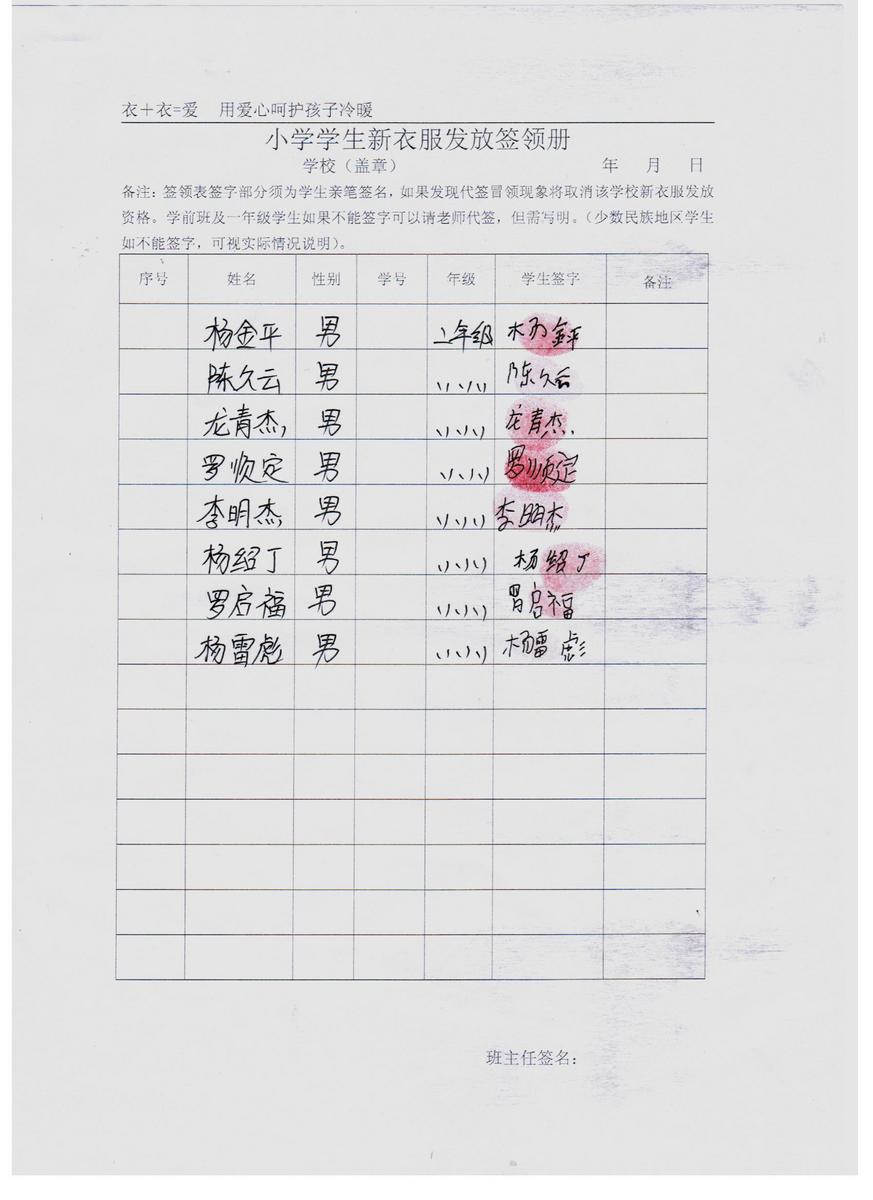 衣＋衣=爱 用爱心呵护孩子冷暖
小学学生新衣服发放签领册
学校（盖章） 年 月 日
备注：签领表签字部分须为学生亲笔签名，如果发现代签冒领现象将取消该学校新衣服发放
资格。学前班及一年级学生如果不能签字可以请老师代签，但需写明。（少数民族地区学生
如不能签字，可视实际情况说明）。
序号 姓名 性别 学号 年级 学生签字 备注
杨金平 男 二年级 杨金平
陈久云 男 〃 〃 陈久云
龙青杰 男 〃 〃 龙青杰
罗顺定 男 〃 〃 罗顺定
李明杰 男 〃 〃 李明杰
杨绍丁 男 〃 〃 杨绍丁
罗启福 男 〃 〃 罗启福
杨雷彪 男 〃 〃 杨雷彪
班主任签名：